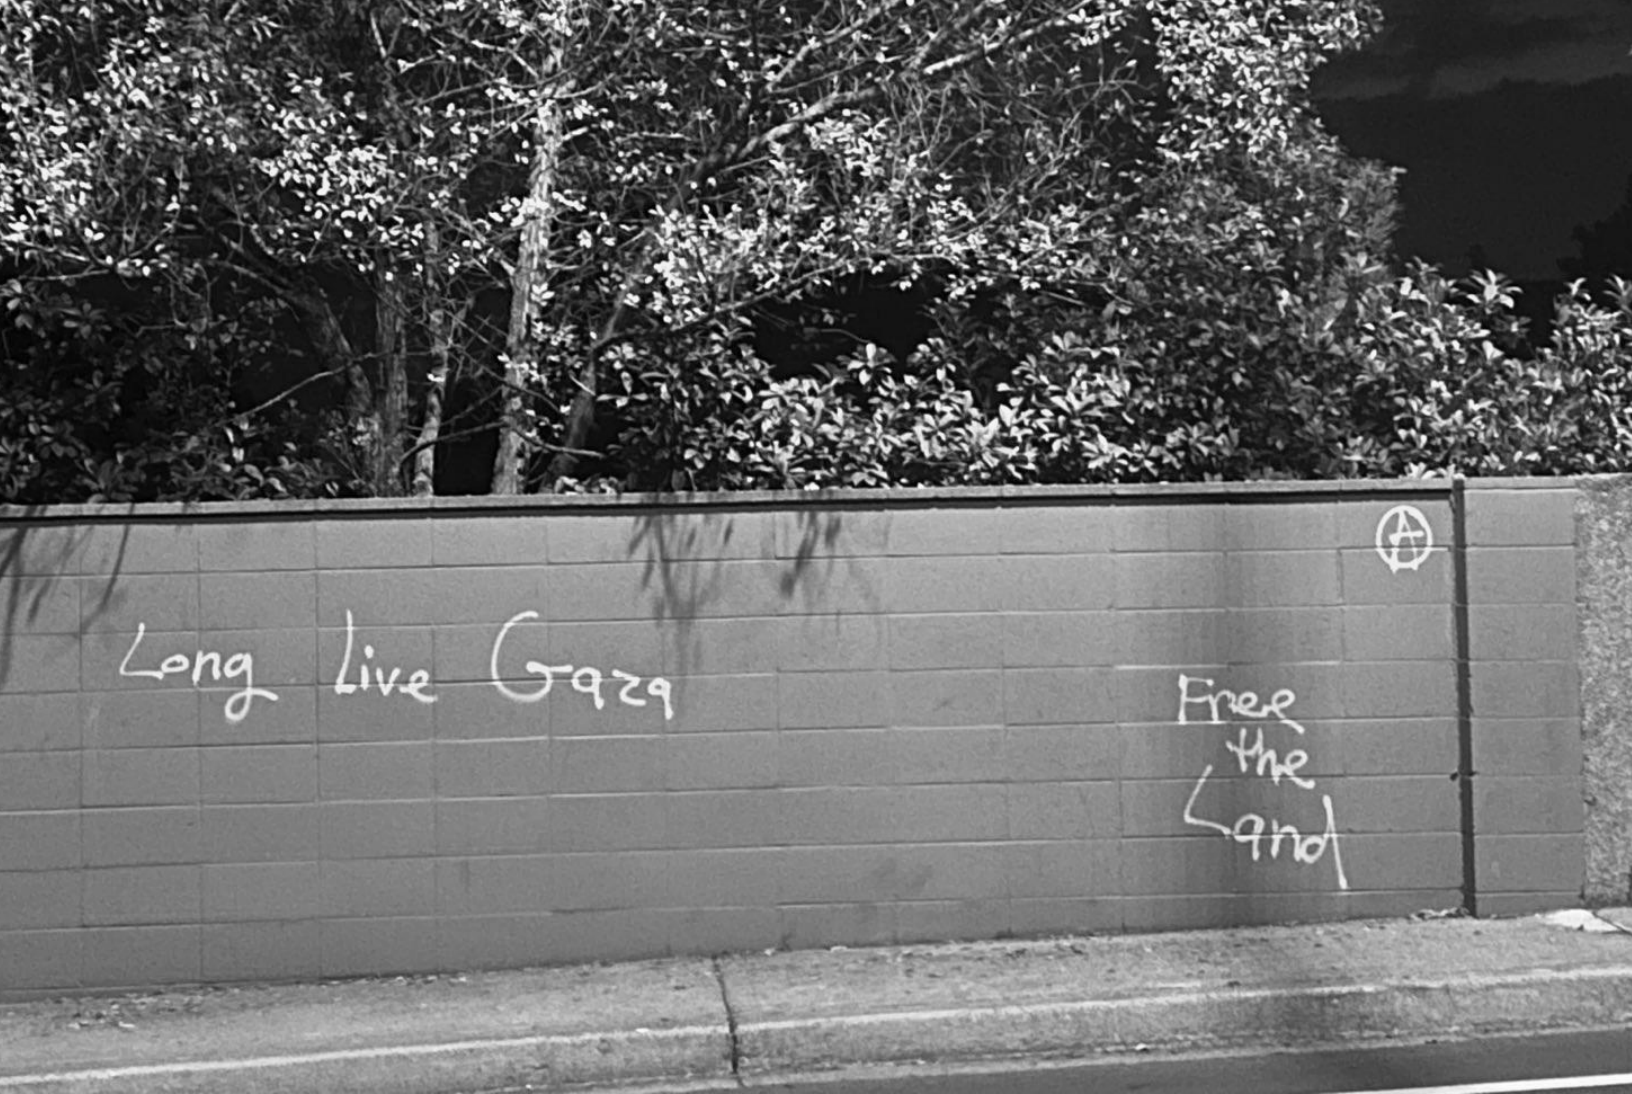 Long Live Gaza
Free
the
Land